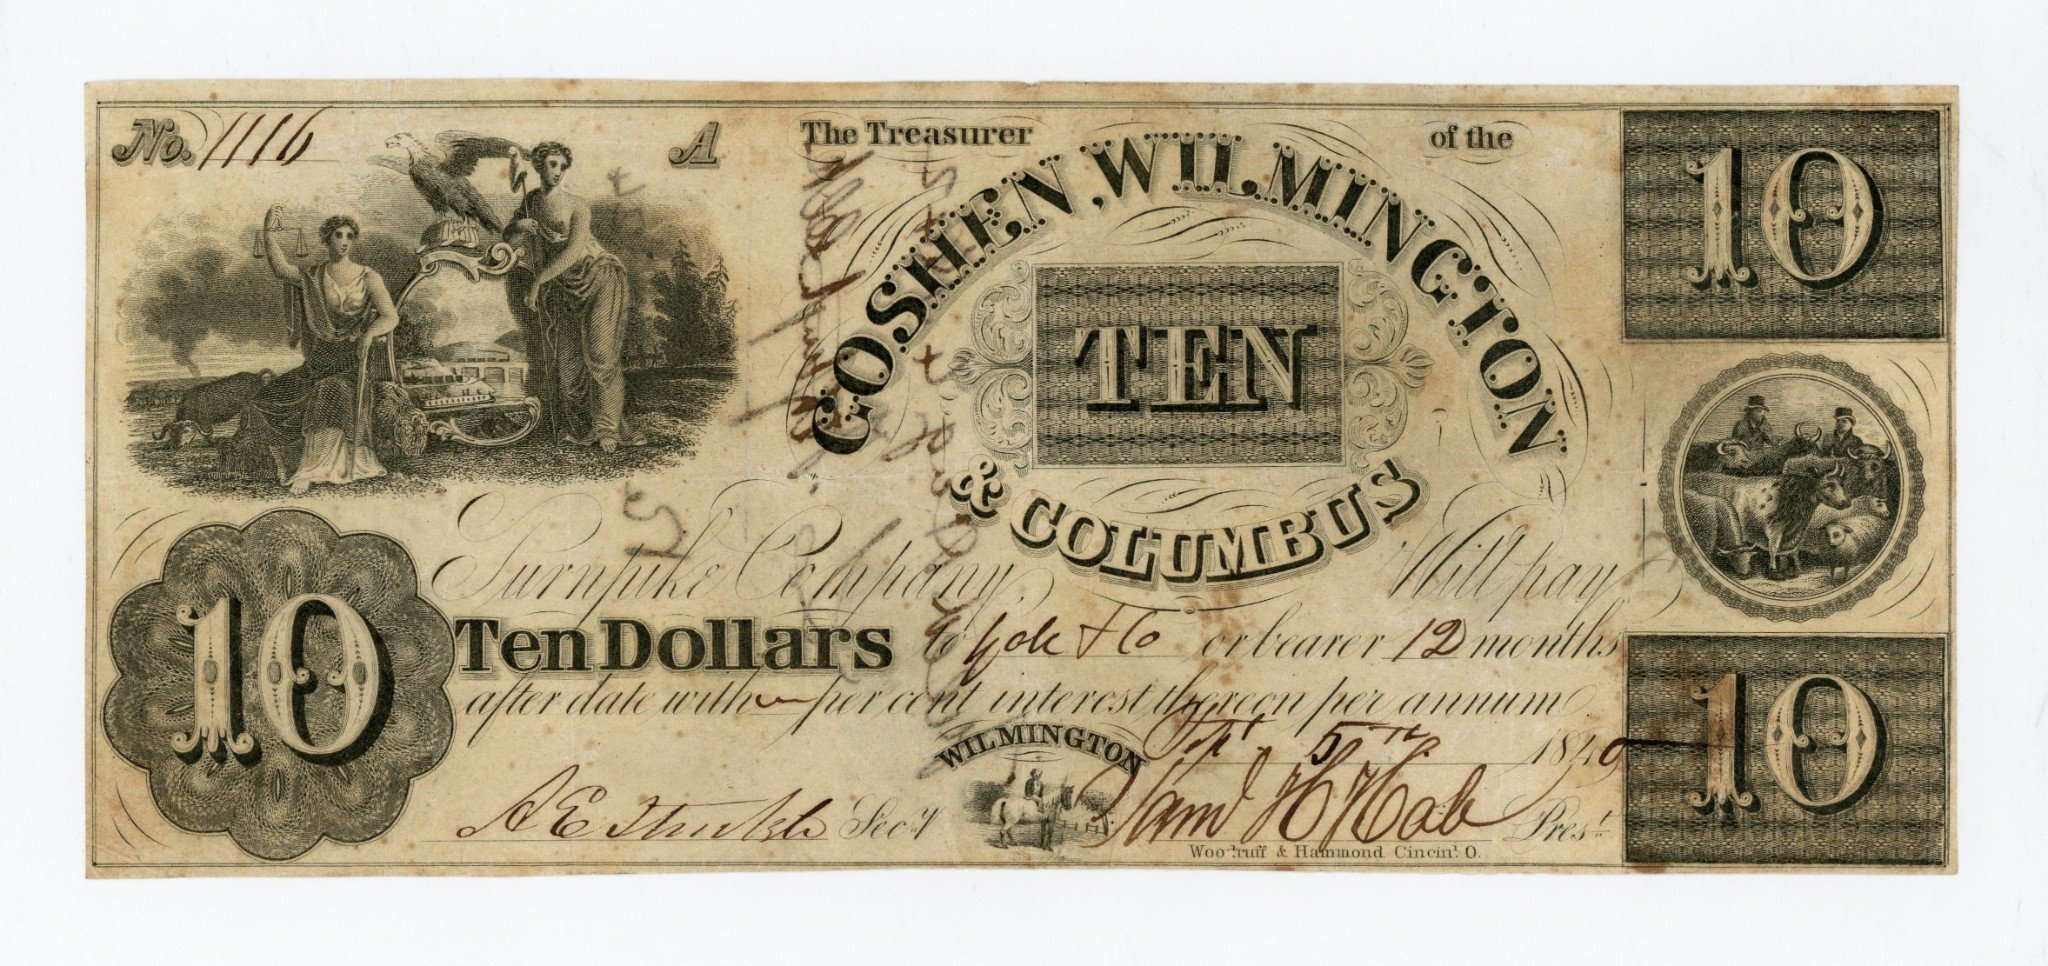 No. 1116 A The Treasurer of the
GOSHEN, WILMINGTON
& COLUMBUS
TEN
10
10
Turnpike Company, Will pay
Ten Dollars to or bearer 12 months
after date with per cent interest thereon per annum
WILMINGTON Sept 5th 1840
Secy Saml H Hale Prest
Woodruff & Hammond Cincint. O.
10